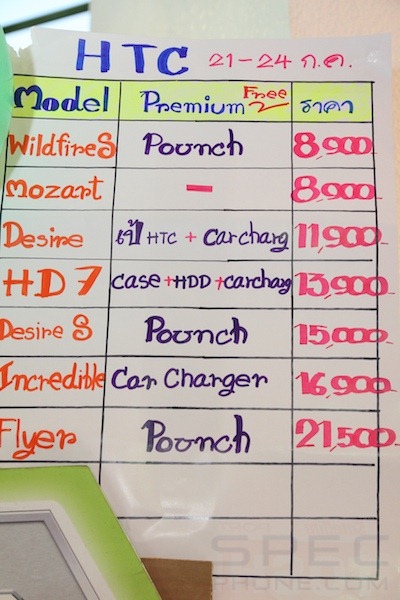 HTC 21-24 ก.ค.
Model Premium Free ราคา
WildfireS Pounch 8,900
Mozart - 8,900
Desire เป้ HTC + Carcharg 11,900
HD7 case+HDD+carcharg 13,900
Desire S Pounch 15,000
Incredible Car Charger 16,900
Flyer Pounch 21,500
SPEC
PHONE.COM